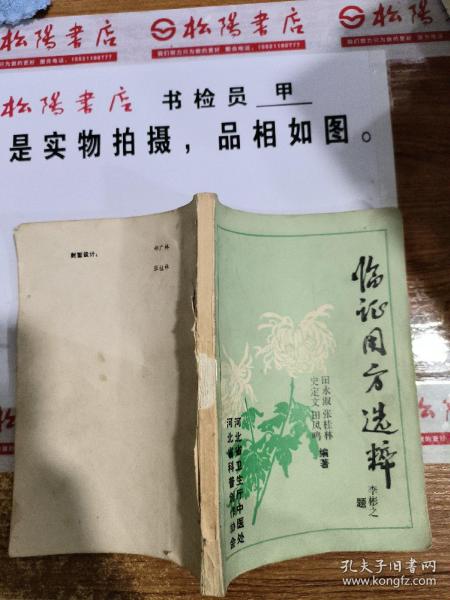 松陽書店
我们努力只为做的更好 图合电话:15521190777
松陽書店
松陽書店 书检员 甲
是实物拍摄，品相如图。
封面设计：
张桂林
临证用方选粹
李彬之
题
田永淑 张桂林
史定文 田凤鸣
编著
河北省卫生厅中医处
河北省科普创作协会
孔夫子旧书网
www.kongfz.com